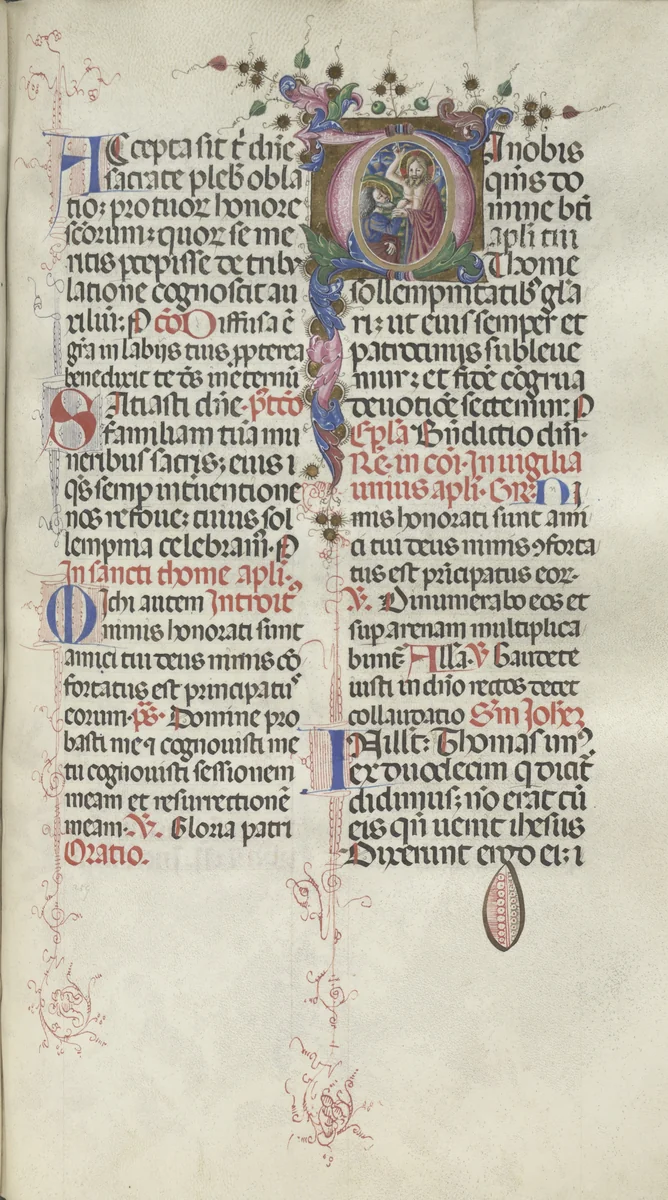 Accepta sit t̄ dn̄e
sacrate pleb̄ obla
tio: pro tuoꝝ honore
scōrum: quoꝝ se me
ritis p̄cepisse de tribu
latione cognoscit au
xiliū: P cō Diffusa ē
gr̄a in labijs tuis, ꝓpterea
benedixit te dē in eternū
Satiasti dn̄e. p̄t cō
familiam tuā mu
neribus sacris; eius i
qs̄ semp̄ inteuentione
nos refoue: cuius sol
lempnia celebram̄. P
In sancti thome apl̄i.
Michi autem Introit̄
nimis honorati sunt
amici tui deus nimis cō
fortatus est principatu᾽
eorum. p̄s̄. Domine pro
basti me ⁊ cognouisti me
tu cognouisti sessionem
meam et resurrectionē
meam. V̄. Gloria patri
Oratio.
Da nobis
qm̄s do
mine bt̄i
apl̄i tui
Thome
sollempnitatibȝ glo
ri: ut eius semper et
patrocinijs subleue
mur: et fidē cōgrua
deuotiōe sectemur. P
Epl̄a Bn̄dictio dn̄i.
Re. in cōi. In uigilia
unius apl̄i. Gr̄. Ni
mis honorati sunt ami
ci tui deus nimis ꝯforta
tus est prīcipatus eoꝝ.
V̄. Dinumerabo eos et
sup arenam multiplica
bunt̄ Alla. V̄ Gaudete
iusti in dn̄o rectos decet
collaudatio Sm̄ Joheȝ
In ill̄ t̄: Thomas un᾽
ex duodecim q̄ dicit̄
didimus; nō erat cū
eis qn̄ uenit ihesus
Dixerunt ergo ei: i